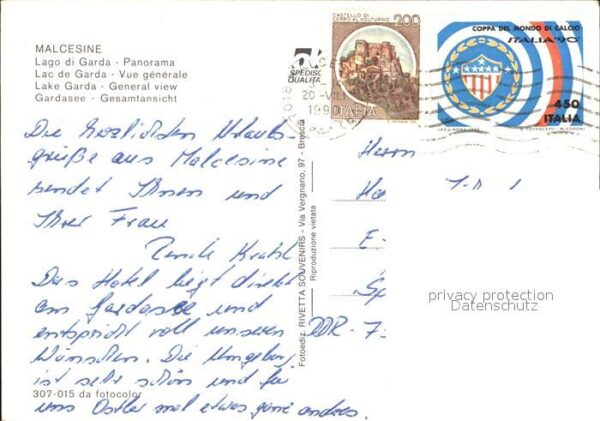 MALCESINE
Lago di Garda - Panorama
Lac de Garda - Vue générale
Lake Garda - General view
Gardasee - Gesamtansicht
CASTELLO DI
CERRO AL VOLTURNO
200
ITALIA
COPPA DEL MONDO DI CALCIO
ITALIA '90
USA
450
ITALIA
SPEDISC
QUALITÀ
20-VII
199
Die herzlichsten Urlaubs-
grüße aus Malcesine
sendet Ihnen und
Ihrer Frau
Krahl
Das Hotel liegt direkt
am Gardasee und
entspricht voll unseren
Wünschen. Die Umgebung
ist sehr schön und für
uns Ostler mal etwas ganz anderes.
Herrn
DDR-7
Fotoediz. RIVETTA SOUVENIRS - Via Vergnano, 97 - Brescia
Riproduzione vietata
privacy protection
Datenschutz
307-015 da fotocolor